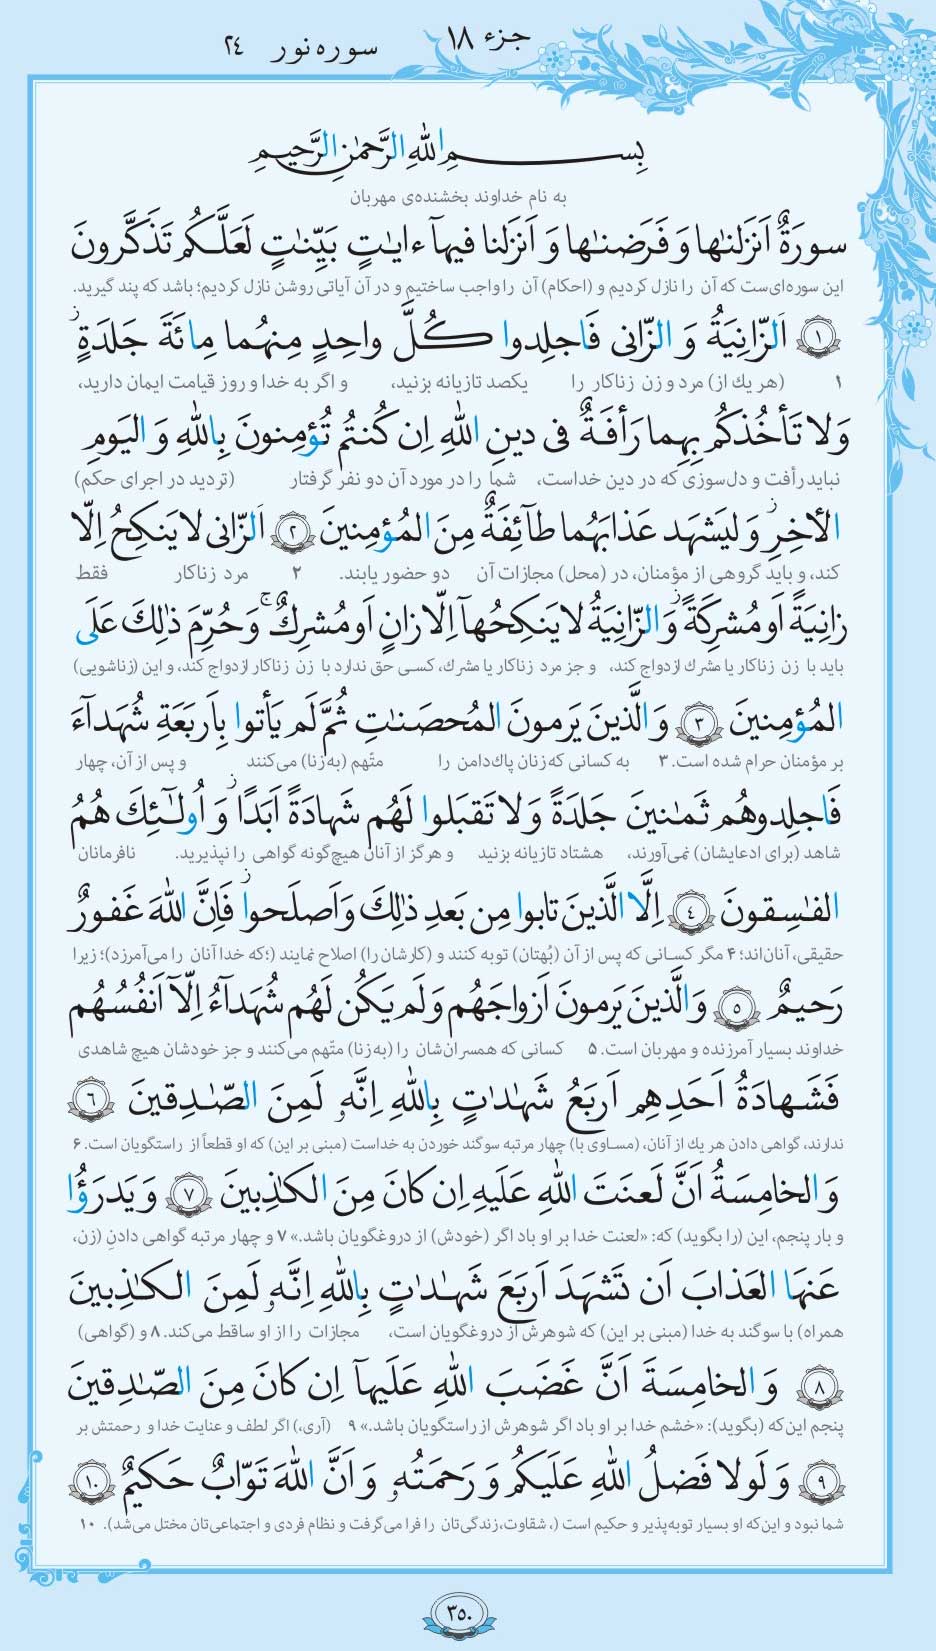 جزء ۱۸ سوره نور ۲۴
بِسمِ اللهِ الرَّحمٰنِ الرَّحیمِ
به نام خداوند بخشنده‌ی مهربان
سورَةٌ اَنزَلنٰها وَ فَرَضنٰها وَ اَنزَلنا فیهآ ءایٰتٍ بَیِّنٰتٍ لَعَلَّکُم تَذَکَّرونَ
این سوره‌ای‌ست که آن را نازل کردیم و (احکام) آن را واجب ساختیم و در آن آیاتی روشن نازل کردیم؛ باشد که پند گیرید.
۱ اَلزّانِیَةُ وَ الزّانی فَاجلِدوا کُلَّ واحِدٍ مِنهُما مِائَةَ جَلدَةٍ ز
۱ (هر یك از) مرد و زن زناکار را یکصد تازیانه بزنید، و اگر به خدا و روز قیامت ایمان دارید،
وَلا تَأخُذکُم بِهِما رَأفَةٌ فی دینِ اللهِ اِن کُنتُم تُؤمِنونَ بِاللهِ وَ الیَومِ
نباید رأفت و دل‌سوزی که در دین خداست، شما را در مورد آن دو نفر گرفتار (تردید در اجرای حکم)
الأخِرِ ز وَلیَشهَد عَذابَهُما طآئِفَةٌ مِنَ المُؤمِنینَ ۲ اَلزّانی لا یَنکِحُ اِلّا
کند، و باید گروهی از مؤمنان، در (محل) مجازات آن دو حضور یابند. ۲ مرد زناکار فقط
زانِیَةً اَو مُشرِکَةً ز وَ الزّانِیَةُ لا یَنکِحُهآ اِلّا زانٍ اَو مُشرِكٌ ج وَ حُرِّمَ ذٰلِكَ عَلَی
باید با زن زناکار یا مشرك ازدواج کند، و جز مرد زناکار یا مشرك، کسی حق ندارد با زن زناکار ازدواج کند، و این (زناشویی)
المُؤمِنینَ ۳ وَ الَّذینَ یَرمونَ المُحصَنٰتِ ثُمَّ لَم یَأتوا بِاَربَعَةِ شُهَدآءَ
بر مؤمنان حرام شده است. ۳ به کسانی که زنان پاك‌دامن را متّهم (به زنا) می‌کنند و پس از آن، چهار
فَاجلِدوهُم ثَمٰنینَ جَلدَةً وَ لا تَقبَلوا لَهُم شَهادَةً اَبَدًا ز وَ اُولٰٓئِكَ هُمُ
شاهد (برای ادعایشان) نمی‌آورند، هشتاد تازیانه بزنید و هرگز از آنان هیچ‌گونه گواهی را نپذیرید. نافرمانان
الفٰسِقونَ ۴ اِلَّا الَّذینَ تابوا مِن بَعدِ ذٰلِكَ وَ اَصلَحوا ز فَاِنَّ اللهَ غَفورٌ
حقیقی، آنان‌اند؛ ۴ مگر کسانی که پس از آن (بُهتان) توبه کنند و (کارشان را) اصلاح نمایند (؛که خدا آنان را می‌آمرزد)؛ زیرا
رَحیمٌ ۵ وَالَّذینَ یَرمونَ اَزواجَهُم وَ لَم یَکُن لَهُم شُهَدآءُ اِلّآ اَنفُسُهُم
خداوند بسیار آمرزنده و مهربان است. ۵ کسانی که همسران‌شان را (به زنا) متّهم می‌کنند و جز خودشان هیچ شاهدی
فَشَهادَةُ اَحَدِهِم اَربَعُ شَهٰدٰتٍ بِاللهِ اِنَّهُ و لَمِنَ الصّٰدِقینَ ۶
ندارند، گواهی دادن هر یك از آنان، (مساوی با) چهار مرتبه سوگند خوردن به خداست (مبنی بر این) که او قطعاً از راستگویان است. ۶
وَ الخامِسَةُ اَنَّ لَعنَتَ اللهِ عَلَیهِ اِن کانَ مِنَ الکٰذِبینَ ۷ وَ یَدرَؤُا
و بار پنجم، این (را بگوید) که: «لعنت خدا بر او باد اگر (خودش) از دروغگویان باشد.» ۷ و چهار مرتبه گواهی دادنِ (زن،
عَنهَا العَذابَ اَن تَشهَدَ اَربَعَ شَهٰدٰتٍ بِاللهِ اِنَّهُ و لَمِنَ الکٰذِبینَ
همراه) با سوگند به خدا (مبنی بر این) که شوهرش از دروغگویان است، مجازات را از او ساقط می‌کند. ۸ و (گواهی)
۸ وَ الخامِسَةَ اَنَّ غَضَبَ اللهِ عَلَیهآ اِن کانَ مِنَ الصّٰدِقینَ
پنجم این‌که (بگوید): «خشم خدا بر او باد اگر شوهرش از راستگویان باشد.» ۹ (آری،) اگر لطف و عنایت خدا و رحمتش بر
۹ وَ لَولا فَضلُ اللهِ عَلَیکُم وَ رَحمَتُهُ و وَ اَنَّ اللهَ تَوّابٌ حَکیمٌ ۱۰
شما نبود و این‌که او بسیار توبه‌پذیر و حکیم است (، شقاوت، زندگی‌تان را فرا می‌گرفت و نظام فردی و اجتماعی‌تان مختل می‌شد). ۱۰
۳۵۰